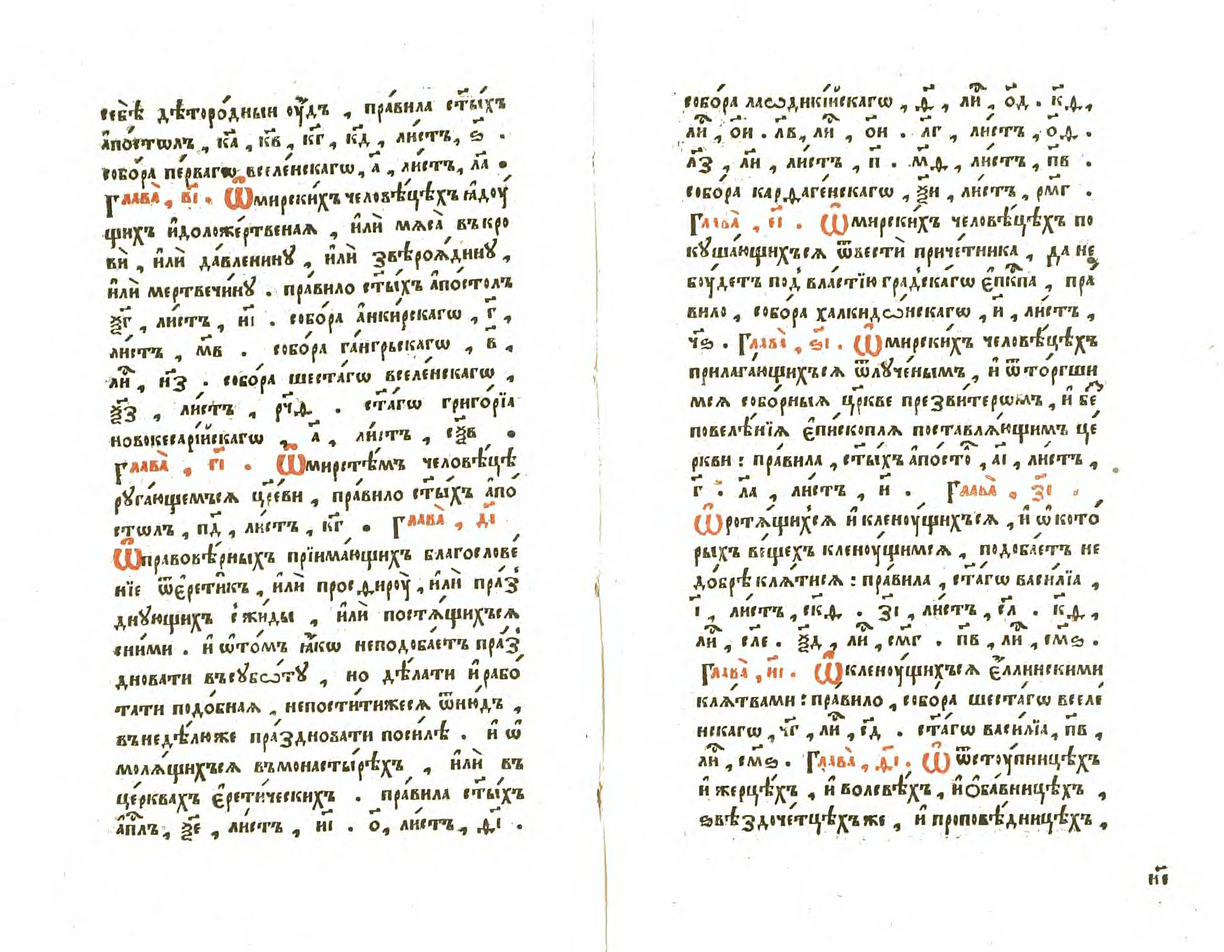 себѐ дѣторо́дныи ᲂу҆́дъ , пра́вила ст҃ы́хъ
а҆пⷭ҇толъ , к҃а , к҃в , к҃г , к҃д , ли́стъ , ѕ҃ .
собо́ра пе́рвагѡ вселе́нскагѡ , а҃ , ли́стъ , л҃а .
Глава̀ , в҃і . Ѿмирски́хъ человѣ́цѣхъ ꙗ҆дꙋ́
щихъ и҆доложе́ртвеная , и҆лѝ мѧ́са въкро
вѝ , и҆лѝ да́вленинꙋ , и҆лѝ ѕвѣроѧ́динꙋ ,
и҆лѝ мертвечи́нꙋ . пра́вило ст҃ы́хъ а҆по́столъ
ѯ҃г , ли́стъ , н҃і . собо́ра а҆нки́рскагѡ , г҃ ,
ли́стъ , м҃в . собо́ра га́нгрьскагѡ , в҃ ,
лиⷭ҇ , н҃з . собо́ра шеста́гѡ вселе́нскагѡ ,
ѯ҃з , ли́стъ , рч҃ѳ . ст҃а́гѡ григо́рїа
новокесарі́йскагѡ , а҃ , ли́стъ , сѯ҃в .
Глава̀ , г҃і . Ѿмирстѣ́мъ человѣ́цѣ
рꙋга́ющемъсѧ цр҃кви , пра́вило ст҃ы́хъ а҆по́
столъ , п҃д , ли́стъ , к҃г . Глава̀ , д҃і
Ѿправовѣ́рныхъ прїима́ющихъ благослове́
нїе ѿє҆рети́къ , и҆лѝ просѳирꙋ̀ , и҆лѝ пра́з
днꙋющихъ сжиды , и҆лѝ постѧ́щихъсѧ
сни́ми . и҆ ѡ҆то́мъ ꙗ҆́кѡ неподоба́етъ пра́з
дновати въсꙋбѡ́тꙋ , но дѣ́лати и҆ рабо́
тати подо́бная , непости́тижесѧ ѿню́дъ ,
внедѣ́люже пра́здновати поси́лѣ . и҆ ѡ҆
молѧ́щихъсѧ въмонастырѣ́хъ , и҆лѝ въ
це́рквахъ є҆рети́ческихъ . пра́вила ст҃ы́хъ
а҆пⷭ҇лъ , ѯ҃е , ли́стъ , н҃і . о҃ , ли́стъ , ѳ҃і .
собо́ра лаѡдикі́йскагѡ , ѳ҃ , лиⷭ҇ , о҃д . к҃ѳ ,
лиⷭ҇ , о҃и . л҃в , лиⷭ҇ , о҃и . л҃г , ли́стъ , о҃ѳ .
л҃з , ли , ли́стъ , п҃ . м҃ѳ , ли́стъ , п҃в .
собо́ра карѳаге́нскагѡ , ѯ҃и , ли́стъ , рм҃г .
Глава̀ , є҃і . Ѿмирски́хъ человѣ́цѣхъ по
кꙋша́ющихъсѧ ѿвестѝ приче́тника , да не
бꙋ́детъ под̾ вла́стїю гра́дскагѡ є҆пкⷭ҇па , пра́
вило , собо́ра халкидѡ́нскагѡ , и҃ , ли́стъ ,
ч҃ѕ . Глава̀ , ѕ҃і . Ѿмирски́хъ человѣ́цѣхъ
прилага́ющихъсѧ ѿлꙋ́ченымъ , и҆ ѿто́ргши
мсѧ собо́рныя цр҃кве презви́терѡмъ , и҆ беⷥ
повелѣ́нїѧ є҆пи́скоплѧ поставлѧ́ющимъ це́
ркви : пра́вила , ст҃ы́хъ а҆посто́ , а҃і , ли́стъ ,
г҃ . л҃а , ли́стъ , и҃ . Глава̀ , з҃і .
Ѿротѧ́щихсѧ и҆ кленꙋ́щихъсѧ , и҆ ѡ҆ кото́
рыхъ ве́щехъ кленꙋ́щимсѧ , подоба́етъ не
до́брѣ клѧ́тисѧ : пра́вила , ст҃а́гѡ васи́лїа ,
і҃ , ли́стъ , ск҃ѳ . з҃і , ли́стъ , с҃л . к҃ѳ ,
лиⷭ҇ , сл҃е . ѯ҃д , лиⷭ҇ , см҃г . п҃в , лиⷭ҇ , см҃ѕ .
Глава̀ , и҃і . Ѿкленꙋ́щихъсѧ є҆́ллинскими
клѧ́твами : пра́вило , собо́ра шеста́гѡ вселе́
нскагѡ , ч҃г , лиⷭ҇ , с҃д . ст҃а́гѡ васи́лїа , п҃в ,
лиⷭ҇ , см҃ѕ . Глава̀ , ѳ҃і . Ѡ ѿстꙋ́пницѣхъ
и҆ жерцѣ́хъ , и҆ волсвѣ́хъ , и҆ ѻ҆ба́вницѣхъ ,
ѕвѣздоче́тцѣхъже , и҆ проповѣ́дницѣхъ ,
к҃е